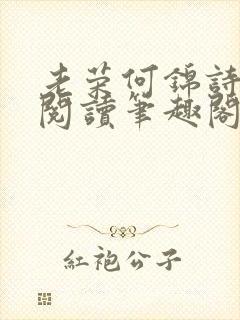 老荣何錦詩
閱讀筆趣閣
紅袍公子